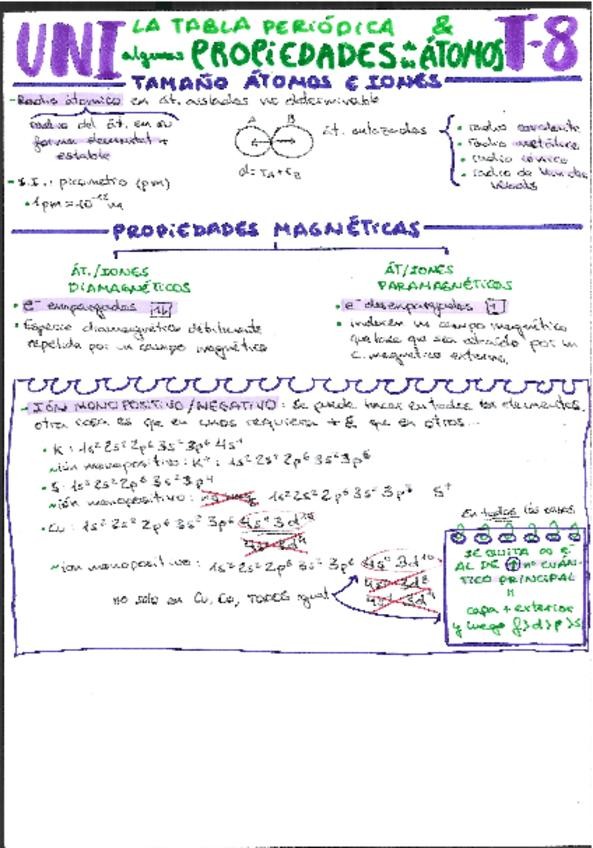 UNI LA TABLA PERIÓDICA & T-8
algunas PROPiEDADES de los ÁTOMOS
TAMAÑO ÁTOMOS E IONES
- Radio atómico en át. aislados no determinable
radio del át. en su
forma elemental +
estable
A B
d = rA + rB
át. enlazados
• radio covalente
• radio metálico
• radio iónico
• radio de Van der
Waals
- S.I.: picómetro (pm)
• 1pm = 10⁻¹² m
PROPiEDADES MAGNÉTICAS
ÁT./IONES
DIAMAGNÉTICOS
• e⁻ emparejados
• Especie diamagnética débilmente
repelida por un campo magnético
ÁT/IONES
PARAMAGNÉTICOS
• e⁻ desemparejados
• inducen un campo magnético
que hace que sea atraído por un
c. magnético externo.
- IÓN MONOPOSITIVO/NEGATIVO: Se puede hacer en todos los elementos,
otra cosa es que en unos requiera + E que en otros...
• K: 1s² 2s² 2p⁶ 3s² 3p⁶ 4s¹
~ ión monopositivo: K⁺: 1s² 2s² 2p⁶ 3s² 3p⁶
• S: 1s² 2s² 2p⁶ 3s² 3p⁴
~ ión monopositivo: 1s² 2s² 2p⁶ 3s² 3p³ S⁺
• Cu: 1s² 2s² 2p⁶ 3s² 3p⁶ 4s¹ 3d¹⁰
~ ión monopositivo: 1s² 2s² 2p⁶ 3s² 3p⁶ 4s⁰ 3d¹⁰
no solo en Cu, Co, TODOS igual
En todos los casos
SE QUITA UN e⁻
AL DE ↑ nº CUÁN-
TICO PRINCIPAL
=
capa + exterior
y luego f>d>p>s